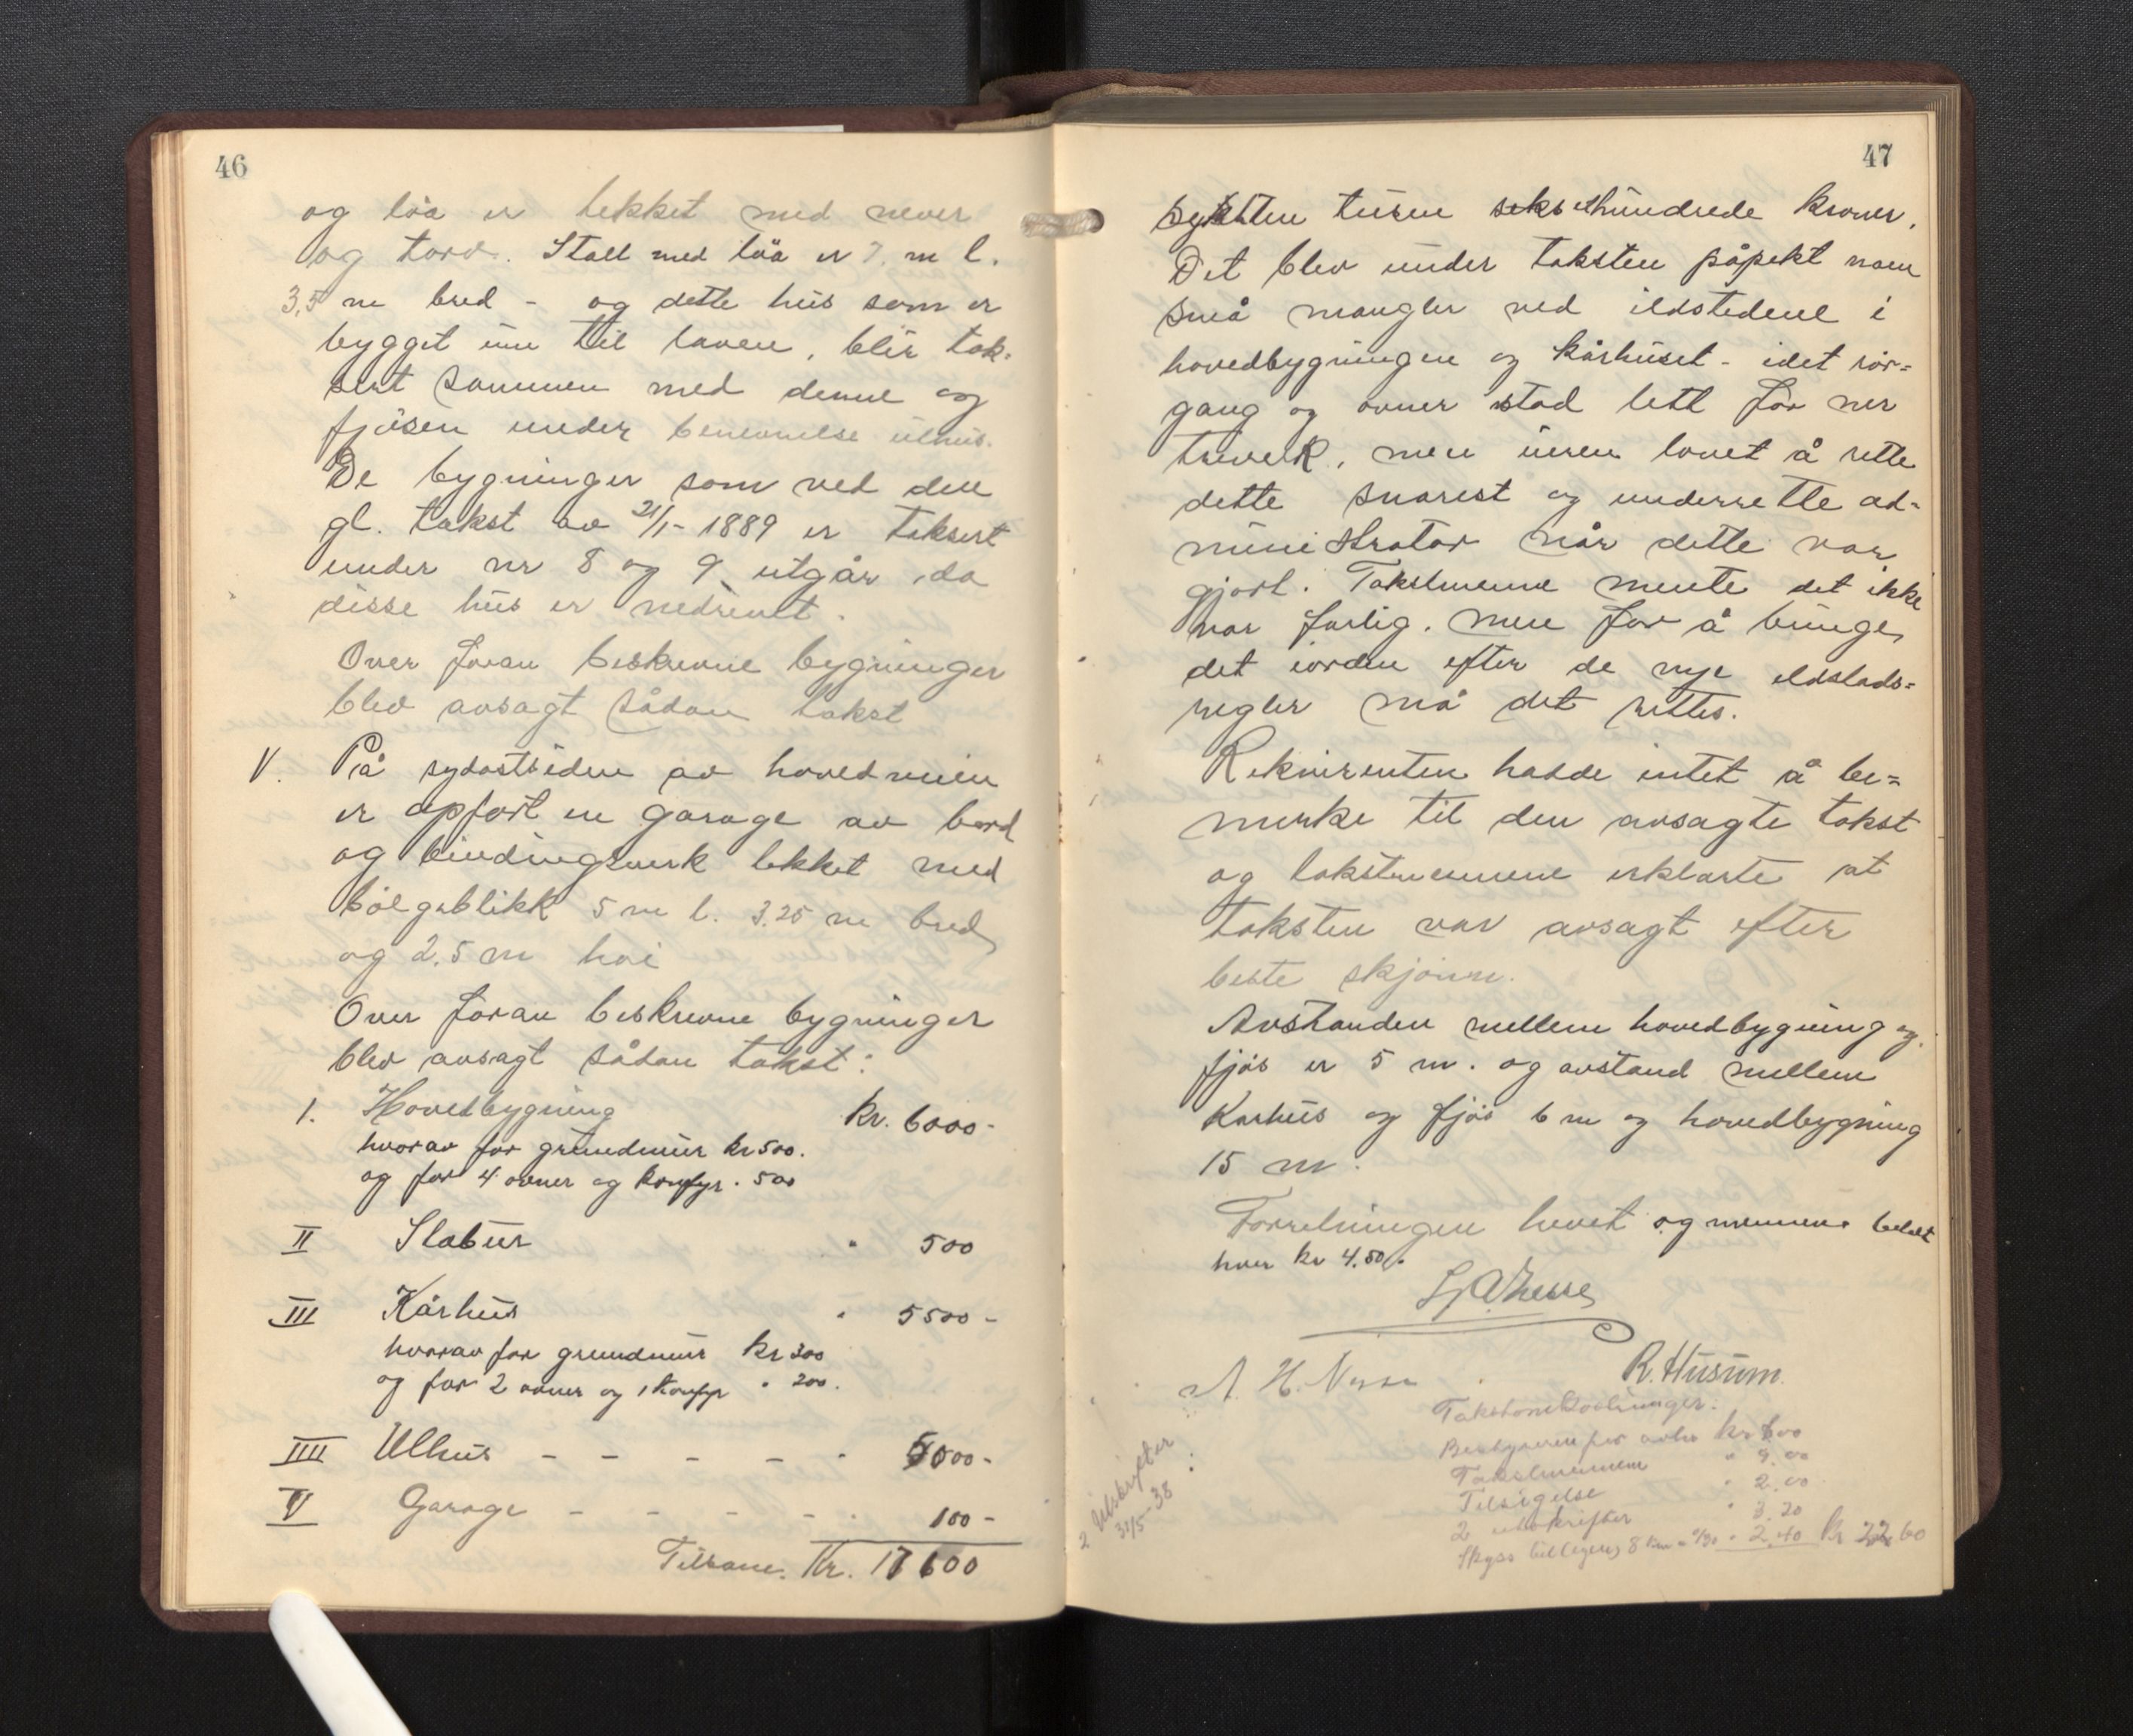 46
og löa er tekket med never
og torv. Stall med löa er 7. m l.
3,5 m bred - og dette hus som er
bygget inn til laven, blir tak-
sert sammen med denne og
fjösen under benevnelse uthus.
De bygninger som ved den
gl. takst av 21/1- 1889 er taksert
under nr 8 og 9 utgår, da
disse hus er nedrevet.
Over foran beskrevne bygninger
blev avsagt sådan takst
V. På sydostsiden av hovedveien
er opfört en garage av bord
og bindingsverk tekket med
bölgeblikk 5 m l. 3.25 m bred
og 2,5 m höi
Over foran beskrevne bygninger
blev avsagt sådan takst:
1. Hovedbygning kr. 6000-
hvorav for grundmur kr 500.
og for 4 ovner og komfyr . 500
II Stabur " 500
III Kårhus " 5500-
hvorav for grundmur kr 300
og for 2 ovner og 1 komfyr " 200.
IIII Uthus - - - - " 5000-
V Garage - - - - . 100-
Tilsam. Kr. 17600
47
sytten tusen sekshundrede kroner.
Det blev under taksten påpekt noen
små mangler ved ildstedene i
hovedbygningen og kårhuset - idet rör=
gang og ovner stod lett for ner
treverk, men eieren lovet å rette
dette snarest og underrette ad-
ministrator når dette var
gjort. Takstmennene mente det ikke
var farlig, men for å bringe
det iorden efter de nye ildsteds=
regler må det rettes.
Rekvirenten hadde intet å be=
merke til den avsagte takst
og takstmennene erklærte at
taksten var avsagt efter
beste skjönn.
Avstanden mellem hovedbygning og
fjös er 5 m. og avstand mellem
Karhus og fjös 6 m og hovedbygning
15 m.
Forretningen hevet og mennene betalt
hver kr 4.50.
A. H. R. Husum.
Takstomkostninger:
Bestyreren for avh. kr 6.00
Takstmennene " 9.00
Tilsigelse " 2.00
2 utskrifter " 3.20
Skyss 8 km " 2.40 kr 22.60
2 Utskrifter
31/5-38